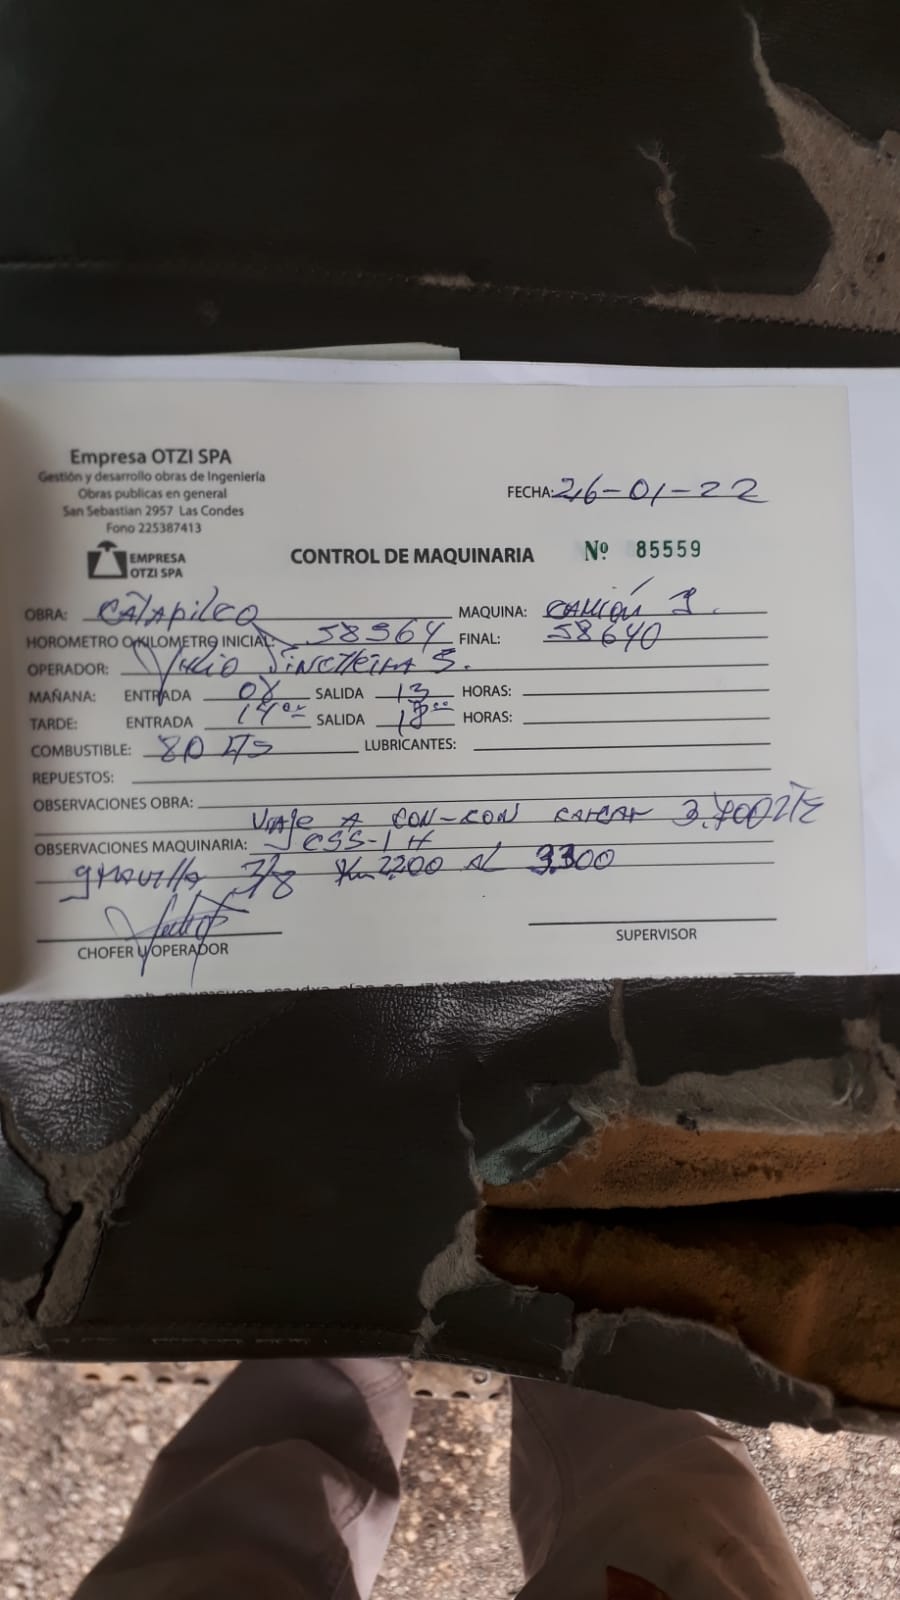 Empresa OTZI SPA
Gestión y desarrollo obras de Ingeniería
Obras publicas en general
San Sebastian 2957 Las Condes
Fono 225387413
EMPRESA
OTZI SPA
FECHA: 26-01-22
CONTROL DE MAQUINARIA Nº 85559
OBRA: CATAPILCO MAQUINA: CAMIÓN 1.
HOROMETRO O KILOMETRO INICIAL: 58564 FINAL: 58640
OPERADOR: Julio S.
MAÑANA: ENTRADA 08 SALIDA 13 HORAS:
TARDE: ENTRADA 14 00 SALIDA 18 00 HORAS:
COMBUSTIBLE: 80 LTS LUBRICANTES:
REPUESTOS:
OBSERVACIONES OBRA:
VIAJE A CON-CON CARGAR
OBSERVACIONES MAQUINARIA: CSS-1 H
gravilla 3/8 Km 2200 al 3.300
CHOFER U OPERADOR
SUPERVISOR